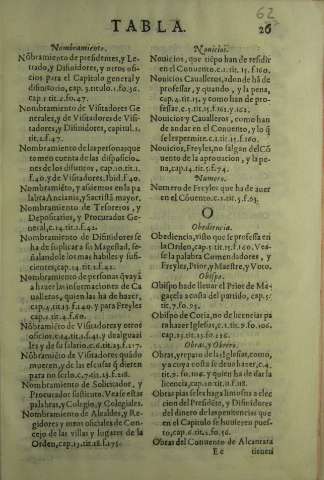 62
TABLA. 26
Nombramiento.
Nõbramiento de presidentes, y Le
trado, y Difinidores, y otros ofi-
cios para el Capitolo general y
difinitorio, cap. 3. titulo. 1. fo. 36.
cap. 1. tit. 2. fo. 47.
Nombramiento de Visitadores Ge
nerales, y de Visitadores de Visi-
tadores, y Difinidores, capitul. 1.
tit. 2. fo. 47.
Nombramiento de las personas que
tomen cuenta de las disposicio-
nes de los difuntos, cap. 10. tit. 1.
f. 40. y de Visitadores. Ibid. f. 40.
Nombramiẽto, y assientos en la pa
labra Ancianis, y Sacristã mayor.
Nombramiento de Tesoreros, y
Depositarios, y Procurador Ge-
neral, c. 14. tit. 1. f. 42.
Nombramiento de Difinidores se
ha de suplicar a su Magestad, se-
ñalandole los mas habiles y sufi-
cientes, cap. 14. tit. 1. f. 42.
Nombramiento de personas q̃ vayã
a hazer las informaciones de Ca
ualleros, quien las ha de hazer,
cap. 4. tit. 13. f. 140. y para Freyles
cap. 2. tit. 4. f. 60.
Nõbramiẽto de Visitadores y otros
oficios, c. 14. tit. 1. f. 41. y de alguazi
les y de su salario, c. 6. tit. 13. f. 117.
Nõbramiẽto de Visitadores quãdo
mueren, y de las escusas q̃ dieren
para no serlo. c. 7. tit. 13. f. 218.
Nombramiento de Solicitador, y
Procurador sustituto. Vease estas
palabras, y Colegio, y Colegiales.
Nombramiento de Alcaldes, y Re
gidores y otros oficiales de Con-
cejo de las villas y lugares de la
Orden, cap. 13. tit. 18. f. 175.
Nouicios.
Nouicios, que tiẽpo han de residir
en el Conuento. c. 1. tit. 15. f. 160.
Nouicios Caualleros, adonde hã de
professar, y quando, y la pena,
cap. 4. tit. 15. y como han de pro-
fessar. c. 3. tit. 15. f. 161. y 162.
Nouicios y Caualleros, como han
de andar en el Conuento, y lo q̃
se les permite. c. 1. tit. 15. f. 160.
Nouicios, Freyles, no salgan del Cõ
uento de la aprouacion, y la pe-
na, cap. 14. tit. 5. f. 74.
Numero.
Numero de Freyles que ha de auer
en el Cõuento. c. 5. tit. 5. f. 63.
O
Obediencia.
Obediencia, visto que se professa en
la Orden, cap. 5. tit. 15. f. 160. Vea-
se la palabra Comendadores, y
Freyles, Prior, y Maestre, y Voto.
Obispo.
Obispo ha de lleuar el Prior de Ma-
gacela a costa del partido, cap. 5.
tit. 7. fo. 95.
Obispo de Coria, no de licencias pa
ra hazer Iglesias, c. 1. tit. 9. fo. 106.
cap. 23. tit. 13. fo. 236.
Obras, y Obrero.
Obras, y reparo de las Iglesias, como,
y a cuya costa se deuẽ hazer, c. 4.
tit. 9. fo. 106. y quien ha de dar la
licencia, cap. 10. tit. 11. f. 118.
Obras pias se les haga limosna a elec
cion del Presidẽte, y Difinidores
del dinero de las penitencias que
en el Capitulo se hunieren pues-
to, cap. 6. tit. 1. fo. 36.
Obras del Conuento de Alcantara
Ee tienen